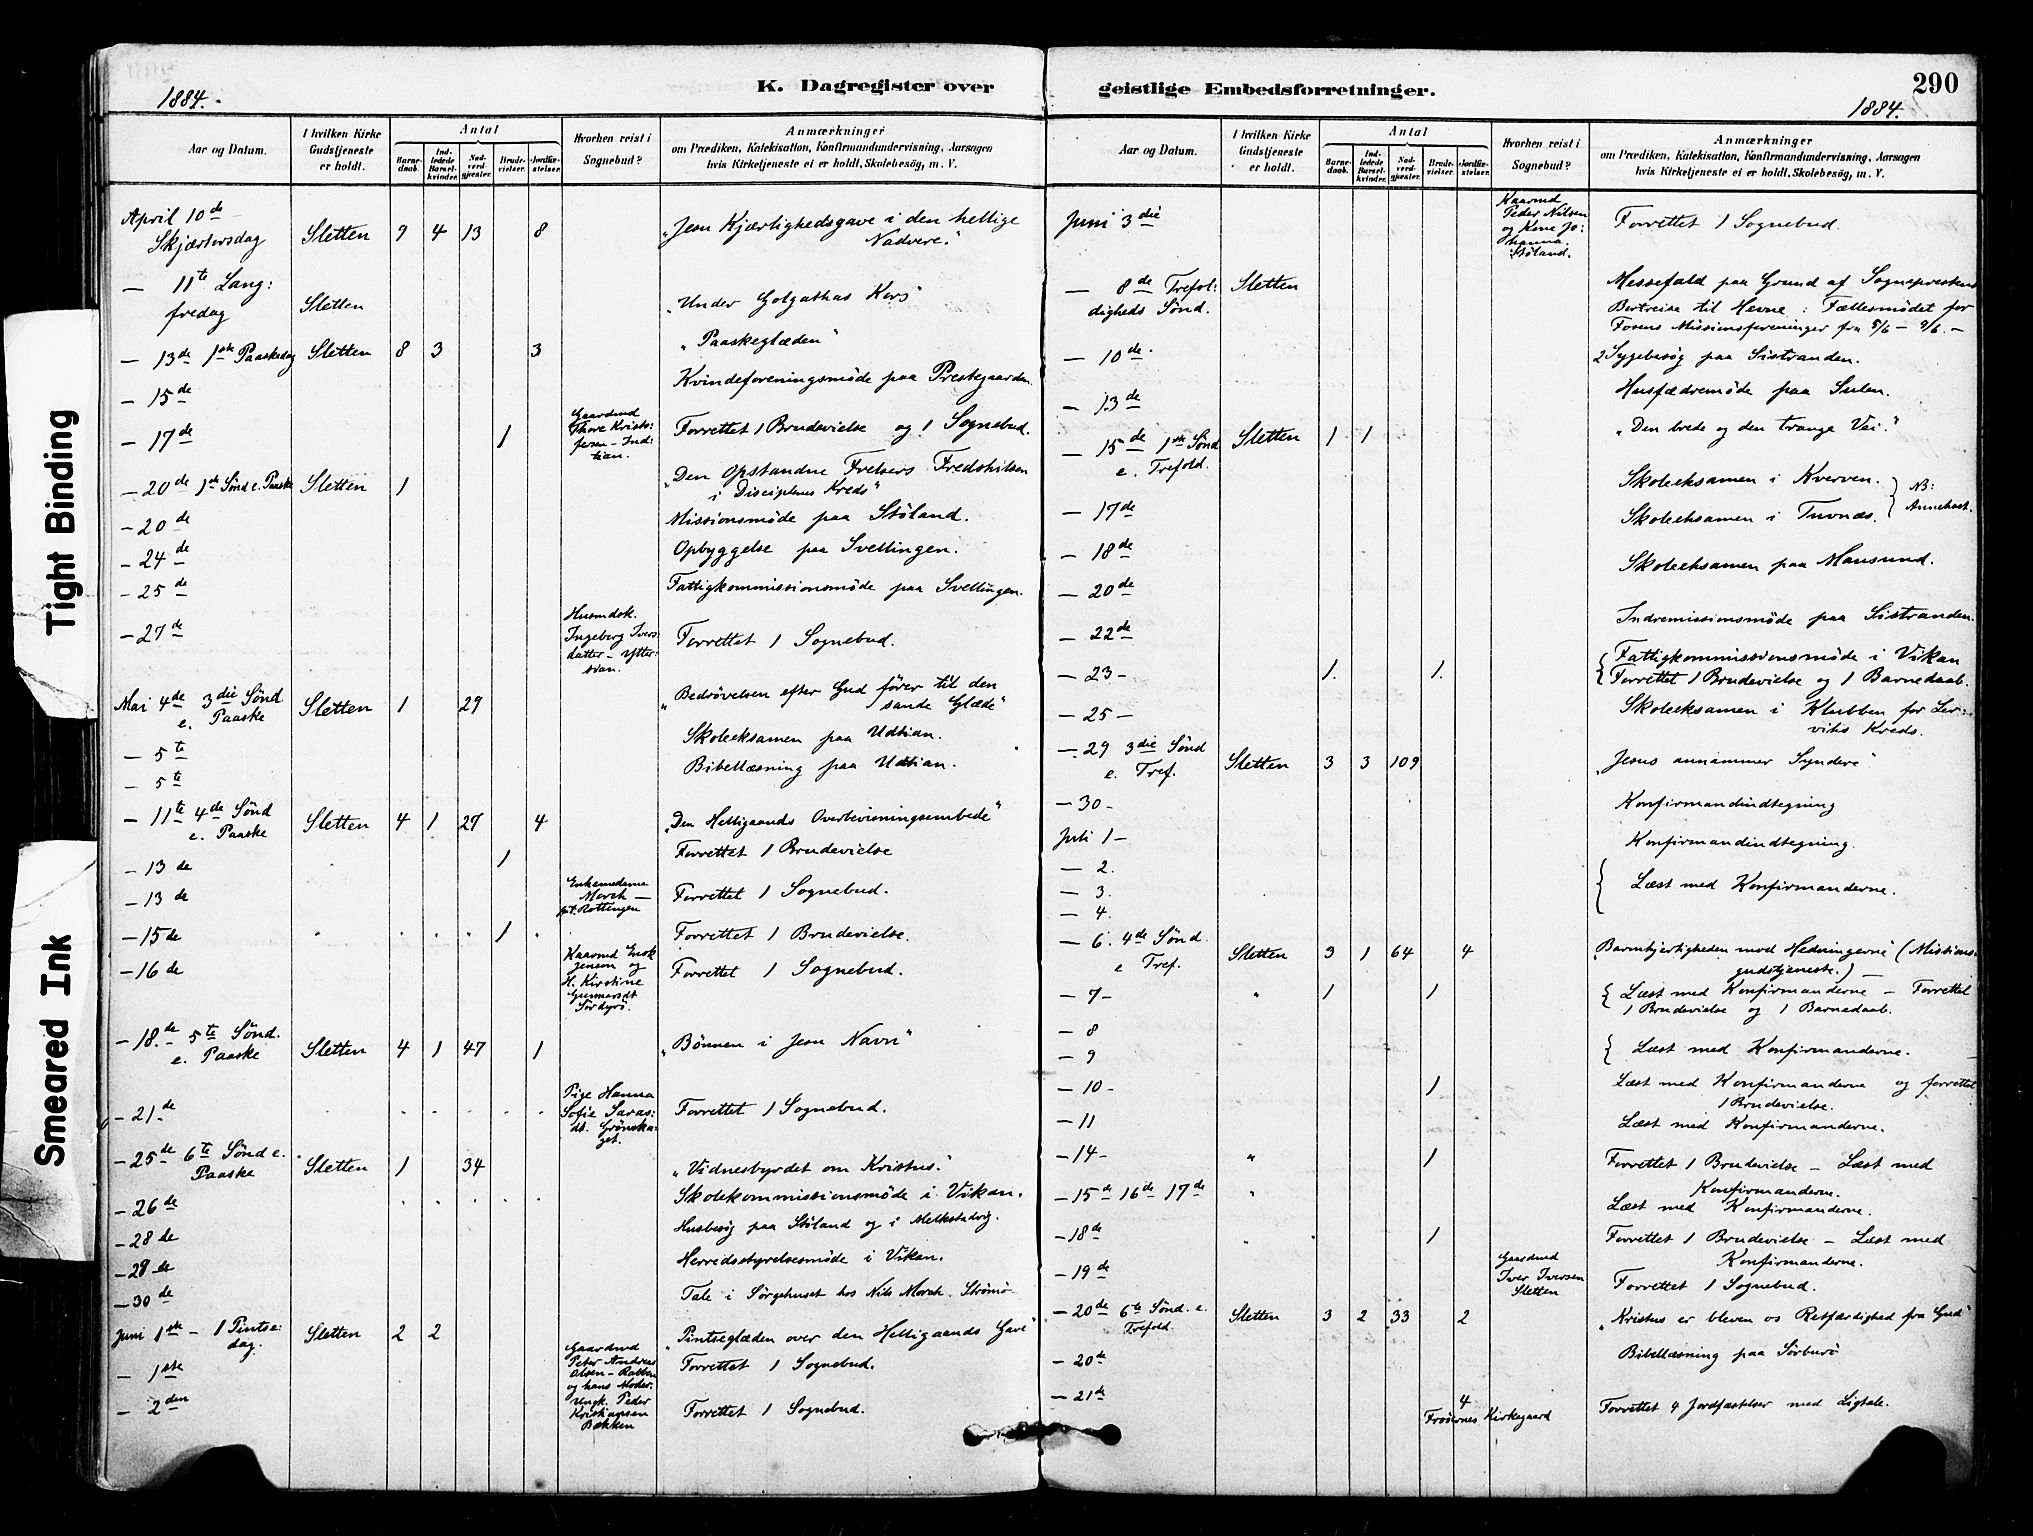 Tight Binding
Smeared Ink
1884.
K. Dagregister over
Aar og Datum.
I hvilken Kirke Gudstjeneste er holdt.
Antal
Barnedaab.
Indledede Barselkvinder.
Nadverdgjæster.
Brudevielser.
Jordfæstelser.
Hvorhen reist i Sognebud?
Anmærkninger
om Prædiken, Katekisation, Konfirmandundervisning, Aarsagen
hvis Kirketjeneste ei er holdt, Skolebesög, m. V.
April 10de Skjærtorsdag Sletten 9 4 13 8 "Jesu Kjærlighedsgave i den hellige Nadvere."
— 11te Langfredag Sletten "Under Golgathas Kors"
— 13de 1ste Paaskedag Sletten 8 3 3 "Paaskeglæden"
— 15de Kvindeforeningsmöde paa Prestegaarden.
— 17de 1 Gaardmd Thore Kristofersen - Indtian. Forrettet 1 Brudevielse og 1 Sognebud.
— 20de 1ste Sönd e. Paaske Sletten 1 "Den Opstandne Frelsers Fredshilsen i Disciplenes Kreds"
— 20de Missionsmöde paa Stöland.
— 24de Opbyggelse paa Svellingen.
— 25de Fattigkommissionsmöde paa Svellingen.
— 27de Husmdsk. Ingeberg Iversdatter - Yttersian. Forrettet 1 Sognebud.
Mai 4de 3die Sönd e. Paaske Sletten 1 29 "Bedrövelsen efter Gud förer til den sande Glæde"
— 5te Skoleeksamen paa Udtian.
— 5te Bibellæsning paa Udtian.
— 11te 4de Sönd e. Paaske Sletten 4 1 27 4 "Den Helligaands Overbevisningsembede"
— 13de 1 Forrettet 1 Brudevielse
— 13de Enkemadame Morch — pt. Rottingen Forrettet 1 Sognebud.
— 15de 1 Forrettet 1 Brudevielse.
— 16de Kaarmd Enok Jensen og H. Kirstine Gunnarsdt Sördyrö. Forrettet 1 Sognebud.
— 18de 5te Sönd. e. Paaske Sletten 4 1 47 1 "Bönnen i Jesu Navn"
— 21de Pige Hanna Sofie Sarasdt. Grönskaget. Forrettet 1 Sognebud.
— 25de 6te Sönd e. Paaske Sletten 1 34 "Vidnesbyrdet om Kristus."
— 26de Skolekommissionsmöde i Vikan.
— 28de Husbesög paa Stöland og i Melkstadvig.
— 29de Herredsstyrelsesmöde i Vikan.
— 30de Tale i Sörgehuset hos Nils Morch. Strömö.
Juni 1ste - 1 Pintsedag. Sletten 2 2 "Pintseglæden over den Helligaands Gave"
— 1ste Gaardmd Peter Andreas Olsen - Rabben og hans Moder. Forrettet 1 Sognebud.
— 2den Ungk. Peder Kristiansen Bækken Forrettet 1 Sognebud.
geistlige Embedsforretninger.
290
1884.
Aar og Datum.
I hvilken Kirke Gudstjeneste er holdt.
Antal
Barnedaab.
Indledede Barselkvinder.
Nadverdgjæster.
Brudevielser.
Jordfæstelser.
Hvorhen reist i Sognebud?
Anmærkninger
om Prædiken, Katekisation, Konfirmandundervisning, Aarsagen
hvis Kirketjeneste ei er holdt, Skolebesög, m. V.
Juni 3die Kaarmd Peder Nilsen og Kone Johanna. Stöland. Forrettet 1 Sognebud.
— 8de Trefoldigheds Sönd. Sletten Messefald paa Grund af Sogneprestens Bortreise til Hevne: Fællesmödet for Fosens Missionsforeninger fra 5/6 - 9/6. -
— 10de 2 Sygebesög paa Sistranden.
— 13de Husfædremöde paa Sulen.
— 15de 1ste Sönd e. Trefold. Sletten 1 1 "Den brede og den trange Vei."
— 17de Skoleeksamen i Kverven.
— 18de Skoleeksamen i Tuvnæs. NB: Annekset.
— 20de Skoleeksamen paa Mausund.
— 22de Indremissionsmöde paa Sistranden.
— 23 - 1. 1. Fattigkommissionsmöde i Vikan Forrettet 1 Brudevielse og 1 Barnedaab.
— 25 - Skoleeksamen i Klubben for Lerviks Kreds.
— 29 3die Sönd e. Tref. Sletten 3 3 109 "Jesus annammer Syndere"
— 30 - Konfirmandindtegning
Juli 1 - Konfirmandindtegning.
— 2.
— 3. Læst med Konfirmanderne.
— 4.
— 6. 4de Sönd. e Tref. Sletten 3 1 64 4 "Barmhjertigheden mod Hedningerne (Missionsgudstjeneste.) —
— 7 - " 1 1 Læst med Konfirmanderne - Forrettet 1 Brudevielse og 1 Barnedaab.
— 8
— 9 Læst med Konfirmanderne.
— 10 - 1 Læst med Konfirmanderne og forrettet 1 Brudevielse.
— 11 Læst med Konfirmanderne.
— 14 - " 1 Forrettet 1 Brudevielse - Læst med Konfirmanderne.
— 15de 16de 17de " Læst med Konfirmanderne.
— 18de " 1 Forrettet 1 Brudevielse - Læst med Konfirmanderne.
— 19de Gaardmd Iver Iversen Sletten Forrettet 1 Sognebud.
— 20de 6te Sönd. e. Trefold. Sletten 3 2 33 2 "Kristus er bleven os Retfærdighed fra Gud"
— 20de Bibellæsning paa Sörburö
— 21de 4 Froöernes Kirkegaard Forrettet 4 Jordfæstelser med Ligtale.